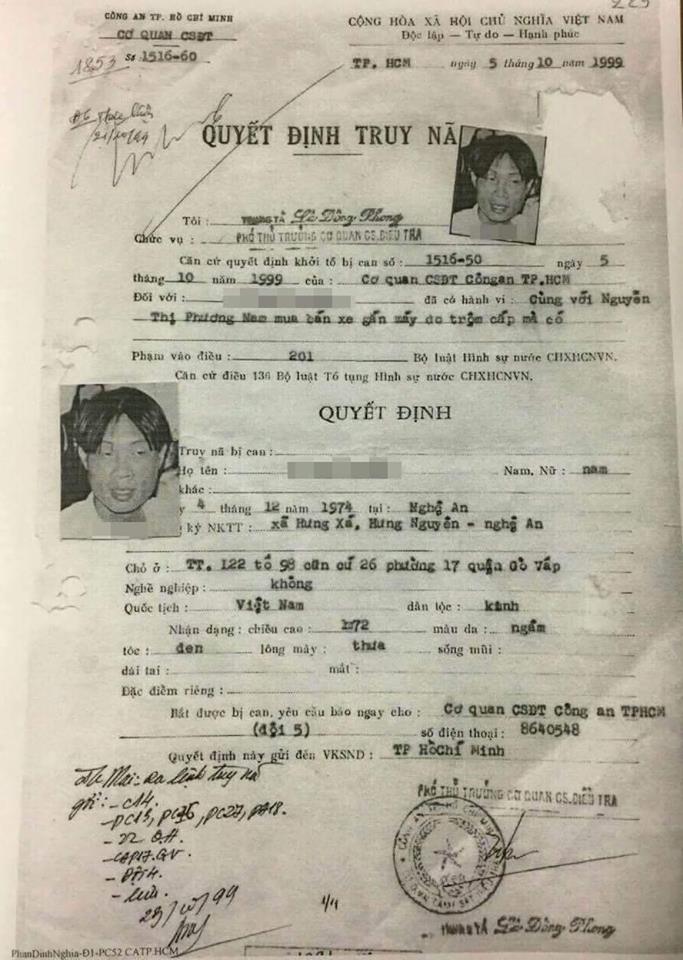 223
CÔNG AN TP. HỒ CHÍ MINH
CỘNG HÒA XÃ HỘI CHỦ NGHĨA VIỆT NAM
CƠ QUAN CSĐT
Độc lập — Tự do — Hạnh phúc
Số 1516-60
1853
TP. HCM ngày 5 tháng 10 năm 1999
21/10/99
QUYẾT ĐỊNH TRUY NÃ
Tôi : TRUNG TÁ Lê Đông Phong
Chức vụ : PHÓ THỦ TRƯỞNG CƠ QUAN CS.ĐIỀU TRA
Căn cứ quyết định khởi tố bị can số : 1516-50 ngày 5
tháng 10 năm 1999 của : Cơ quan CSĐT Côngan TP.HCM
Đối với : đã có hành vi : Cùng với Nguyễn
Thị Phương Nam mua bán xe gắn máy do trộm cấp mà có
Phạm vào điều : 201 Bộ luật Hình sự nước CHXHCNVN.
Căn cứ điều 136 Bộ luật Tố tụng Hình sự nước CHXHCNVN.
QUYẾT ĐỊNH
Truy nã bị can :
Họ tên : Nam, Nữ : nam
khác :
y 4 tháng 12 năm 1974 tại : Nghệ An
ký NKTT : xã Hưng Xá, Hưng Nguyên - nghệ An
Chỗ ở : TT. 122 tổ 98 căn cứ 26 phường 17 quận Gò Vấp
Nghề nghiệp : không
Quốc tịch : Việt Nam dân tộc : kinh
Nhận dạng : chiều cao : 1m72 màu da : ngăm
tóc : đen lông mày : thưa sống mũi :
dái tai : mắt :
Đặc điểm riêng :
Bắt được bị can, yêu cầu báo ngay cho : Cơ quan CSĐT Công an TPHCM
(đội 5) số điện thoại : 8640548
Quyết định này gửi đến VKSND : TP HồChí Minh
ra lệnh truy nã
gởi : - C14.
- PC13, PC16, PC27, PA18.
- 22 Q.H.
- CAP17.GV.
- Đội 4.
- Lưu.
29/10/99
PHÓ THỦ TRƯỞNG CƠ QUAN CS.ĐIỀU TRA
TRUNG TÁ Lê Đông Phong
PhanDinhNghia-Đ1-PC52 CATP.HCM